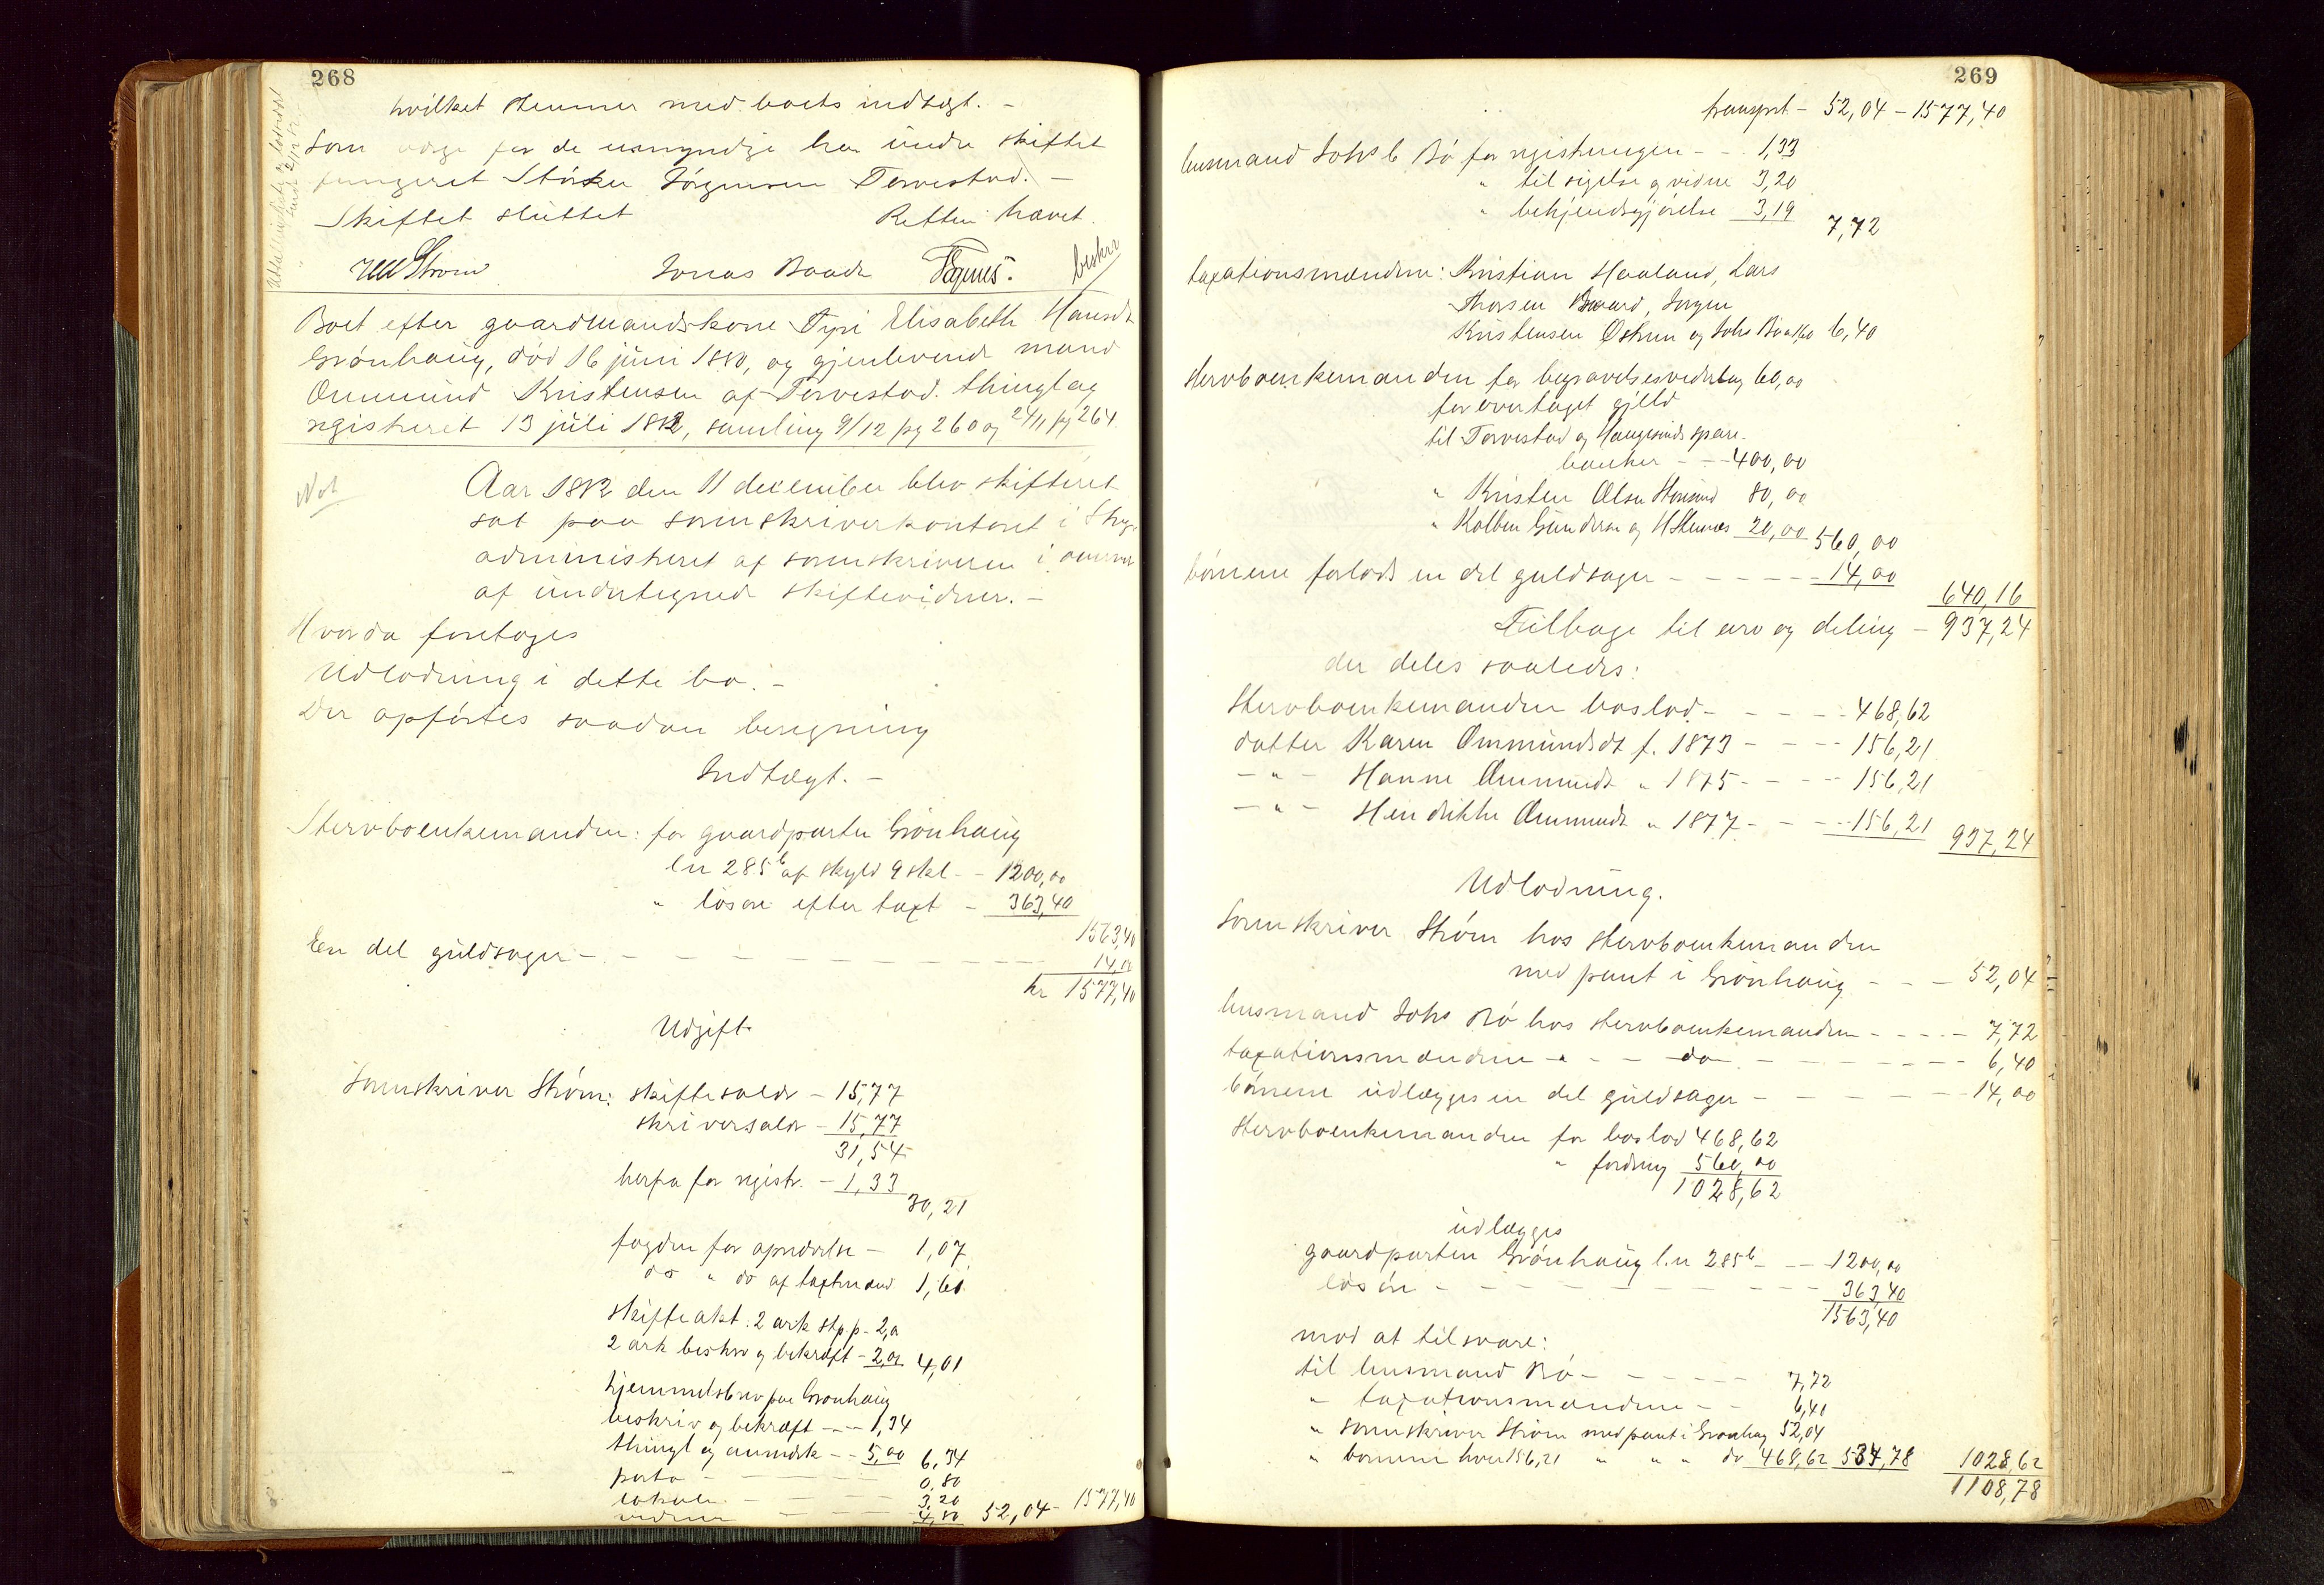 268
hvilket stemmer med boets indtægt. -
Som værge for de umyndige har under skiftet
fungeret Stórker Jórgensen Torvestad. -
Skiftet sluttet Retten hævet.
Strom Jonas Baade beskr
Boet efter gaardmandskone Tyri Elisabeth Hansdt
Grónhaug, død 16 juni 1880, og gjenlevende mand
Ommund Kristensen af Torvestad. thinglag
registreret 13 juli 1882, samling 9/12 pg 260 og 24/1 pg 264
Aar 1882 den 11 december blev skifteret
sat paa sorenskriverkontoret i
administreret af sorenskriveren i overvær
af undertegnede skiftevidner. -
Hvorda foretoges
Udlodning i dette bo. -
Der opfórtes saadan beregning
Indtægt. -
Stervboenkemanden: for gaardparten Grónhaug
ln 285 b af skyld 9 skl - - 1200,00
" lósóre efter taxt - 363,40
1563,40
En del guldsager - - - - - - - - 14,00
kr 1577,40
Udgift
Sorenskriver Stróm: skiftesalær - 15,77
skriversalær - 15,77
31,54
herfra for registr. - 1,33
30,21
fogden for opnævnelse - 1,07
do " do af taxtmænd 1,60
skifteakt: 2 ark stp p - 2,00
2 ark beskr og bekræft - 2,01 4,01
hjemmelsbrev paa Gronhaug
beskriv og bekræft - - - 1,34
thingl og anmærk - - 5,00 6,34
porto - - - 0,80
lokale - - - 3,20
vidner - - - 4,80 52,04 - 1577,40
269
transprt - 52,04 - 1577,40
husmand Johs Bó for registreringen - - 1,33
" tilsigelse og vidne 3,20
" bekjendtgjórelse 3,19
7,72
taxationsmændene: Kristian Haaland, Lars
Thorsen Borgen
Kristensen Østrem og Johs 6,40
Stervboenkemanden for begravelsesvederlag 60,00
for overtaget gjeld
til Torvestad og Haugesunds spare-
banker - - - 400,00
" Kristen Olsen 80,00
" Kolben Gundersen og 20,00 560,00
bórnene forlods en del guldsager - - - - - 14,00
640,16
Tilbage til arv og deling - 937,24
der deles saaledes:
Stervboenkemanden boslod - - - - - 468,62
datter Karen Ommundsdt f. 1873 - - - - 156,21
- " - Hanne Ommundsdt " 1875 - - - - 156,21
- " - Hendrikke Ommundsdt " 1877 - - - - 156,21
937,24
Udlodning.
Sorenskriver Stróm hos stervboenkemanden
med pant i Grónhaug - - - 52,04
husmand Johs Bó hos stervboenkemanden - - - - 7,72
taxationsmændene - " - - do - - - - - 6,40
bórnene udlægges en del guldsager - - - - - 14,00
Stervboenkemanden for boslod 468,62
" fordring 560,00
1028,62
udlægges
gaardparten Grónhaug l.n 285 b - - - 1200,00
lósóre - - - - - - - - 363,40
1563,40
mod at tilsvare:
til husmand Bó - - - - - - 7,72
" taxationsmændene - - 6,40
" sorenskriver Strom med pant i Gronhaug 52,04
" bornene hver 156,21 " " " do 468,62 534,78 1028,62
1108,78